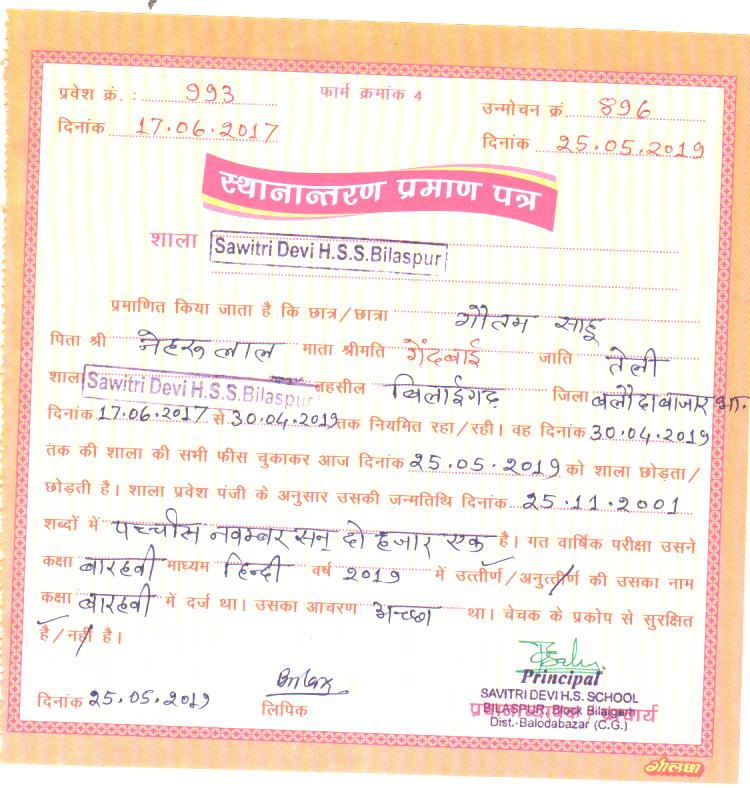 प्रवेश क्रं. : 993 फार्म क्रमांक 4 उन्मोचन क्रं 896
दिनांक 17.06.2017 दिनांक 25.05.2019
स्थानान्तरण प्रमाण पत्र
शाला Sawitri Devi H.S.S.Bilaspur
प्रमाणित किया जाता है कि छात्र/छात्रा गौतम साहू
पिता श्री नेहरू लाल माता श्रीमति गेंदबाई जाति तेली
शाला Sawitri Devi H.S.S.Bilaspur तहसील बिलाईगढ़ जिला बलौदाबाजार भा.
दिनांक 17.06.2017 से 30.04.2019 तक नियमित रहा/रही। वह दिनांक 30.04.2019
तक की शाला की सभी फीस चुकाकर आज दिनांक 25.05.2019 को शाला छोड़ता/
छोड़ती है। शाला प्रवेश पंजी के अनुसार उसकी जन्मतिथि दिनांक 25.11.2001
शब्दों में पच्चीस नवम्बर सन् दो हजार एक है। गत वार्षिक परीक्षा उसने
कक्षा बारहवी माध्यम हिन्दी वर्ष 2019 में उत्तीर्ण/अनुत्तीर्ण की उसका नाम
कक्षा बारहवी में दर्ज था। उसका आचरण अच्छा था। चेचक के प्रकोप से सुरक्षित
है/नहीं है।
Principal
SAVITRI DEVI H.S. SCHOOL
दिनांक 25.05.2019 लिपिक BILASPUR, Block Bilaigarh
Dist.-Balodabazar (C.G.)
गोलछा